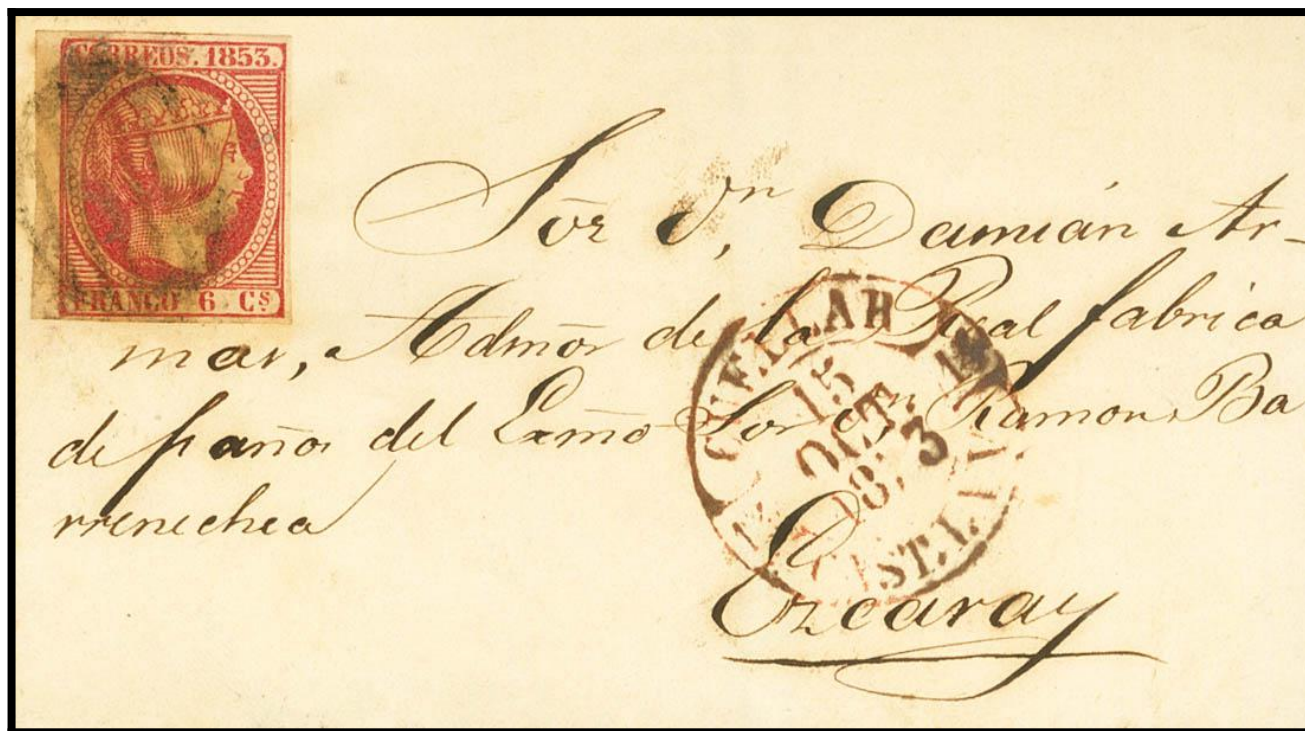 CORREOS. 1853.
FRANCO 6 Cs
Sor Dn, Damián Ar-
mar, Admor de la Real fabrica
de paños del Exmo Sor Dn Ramon Ba
rrenechea
Ezcaray
CUELLAR
15
OCT.
1853
CAST. LA V.